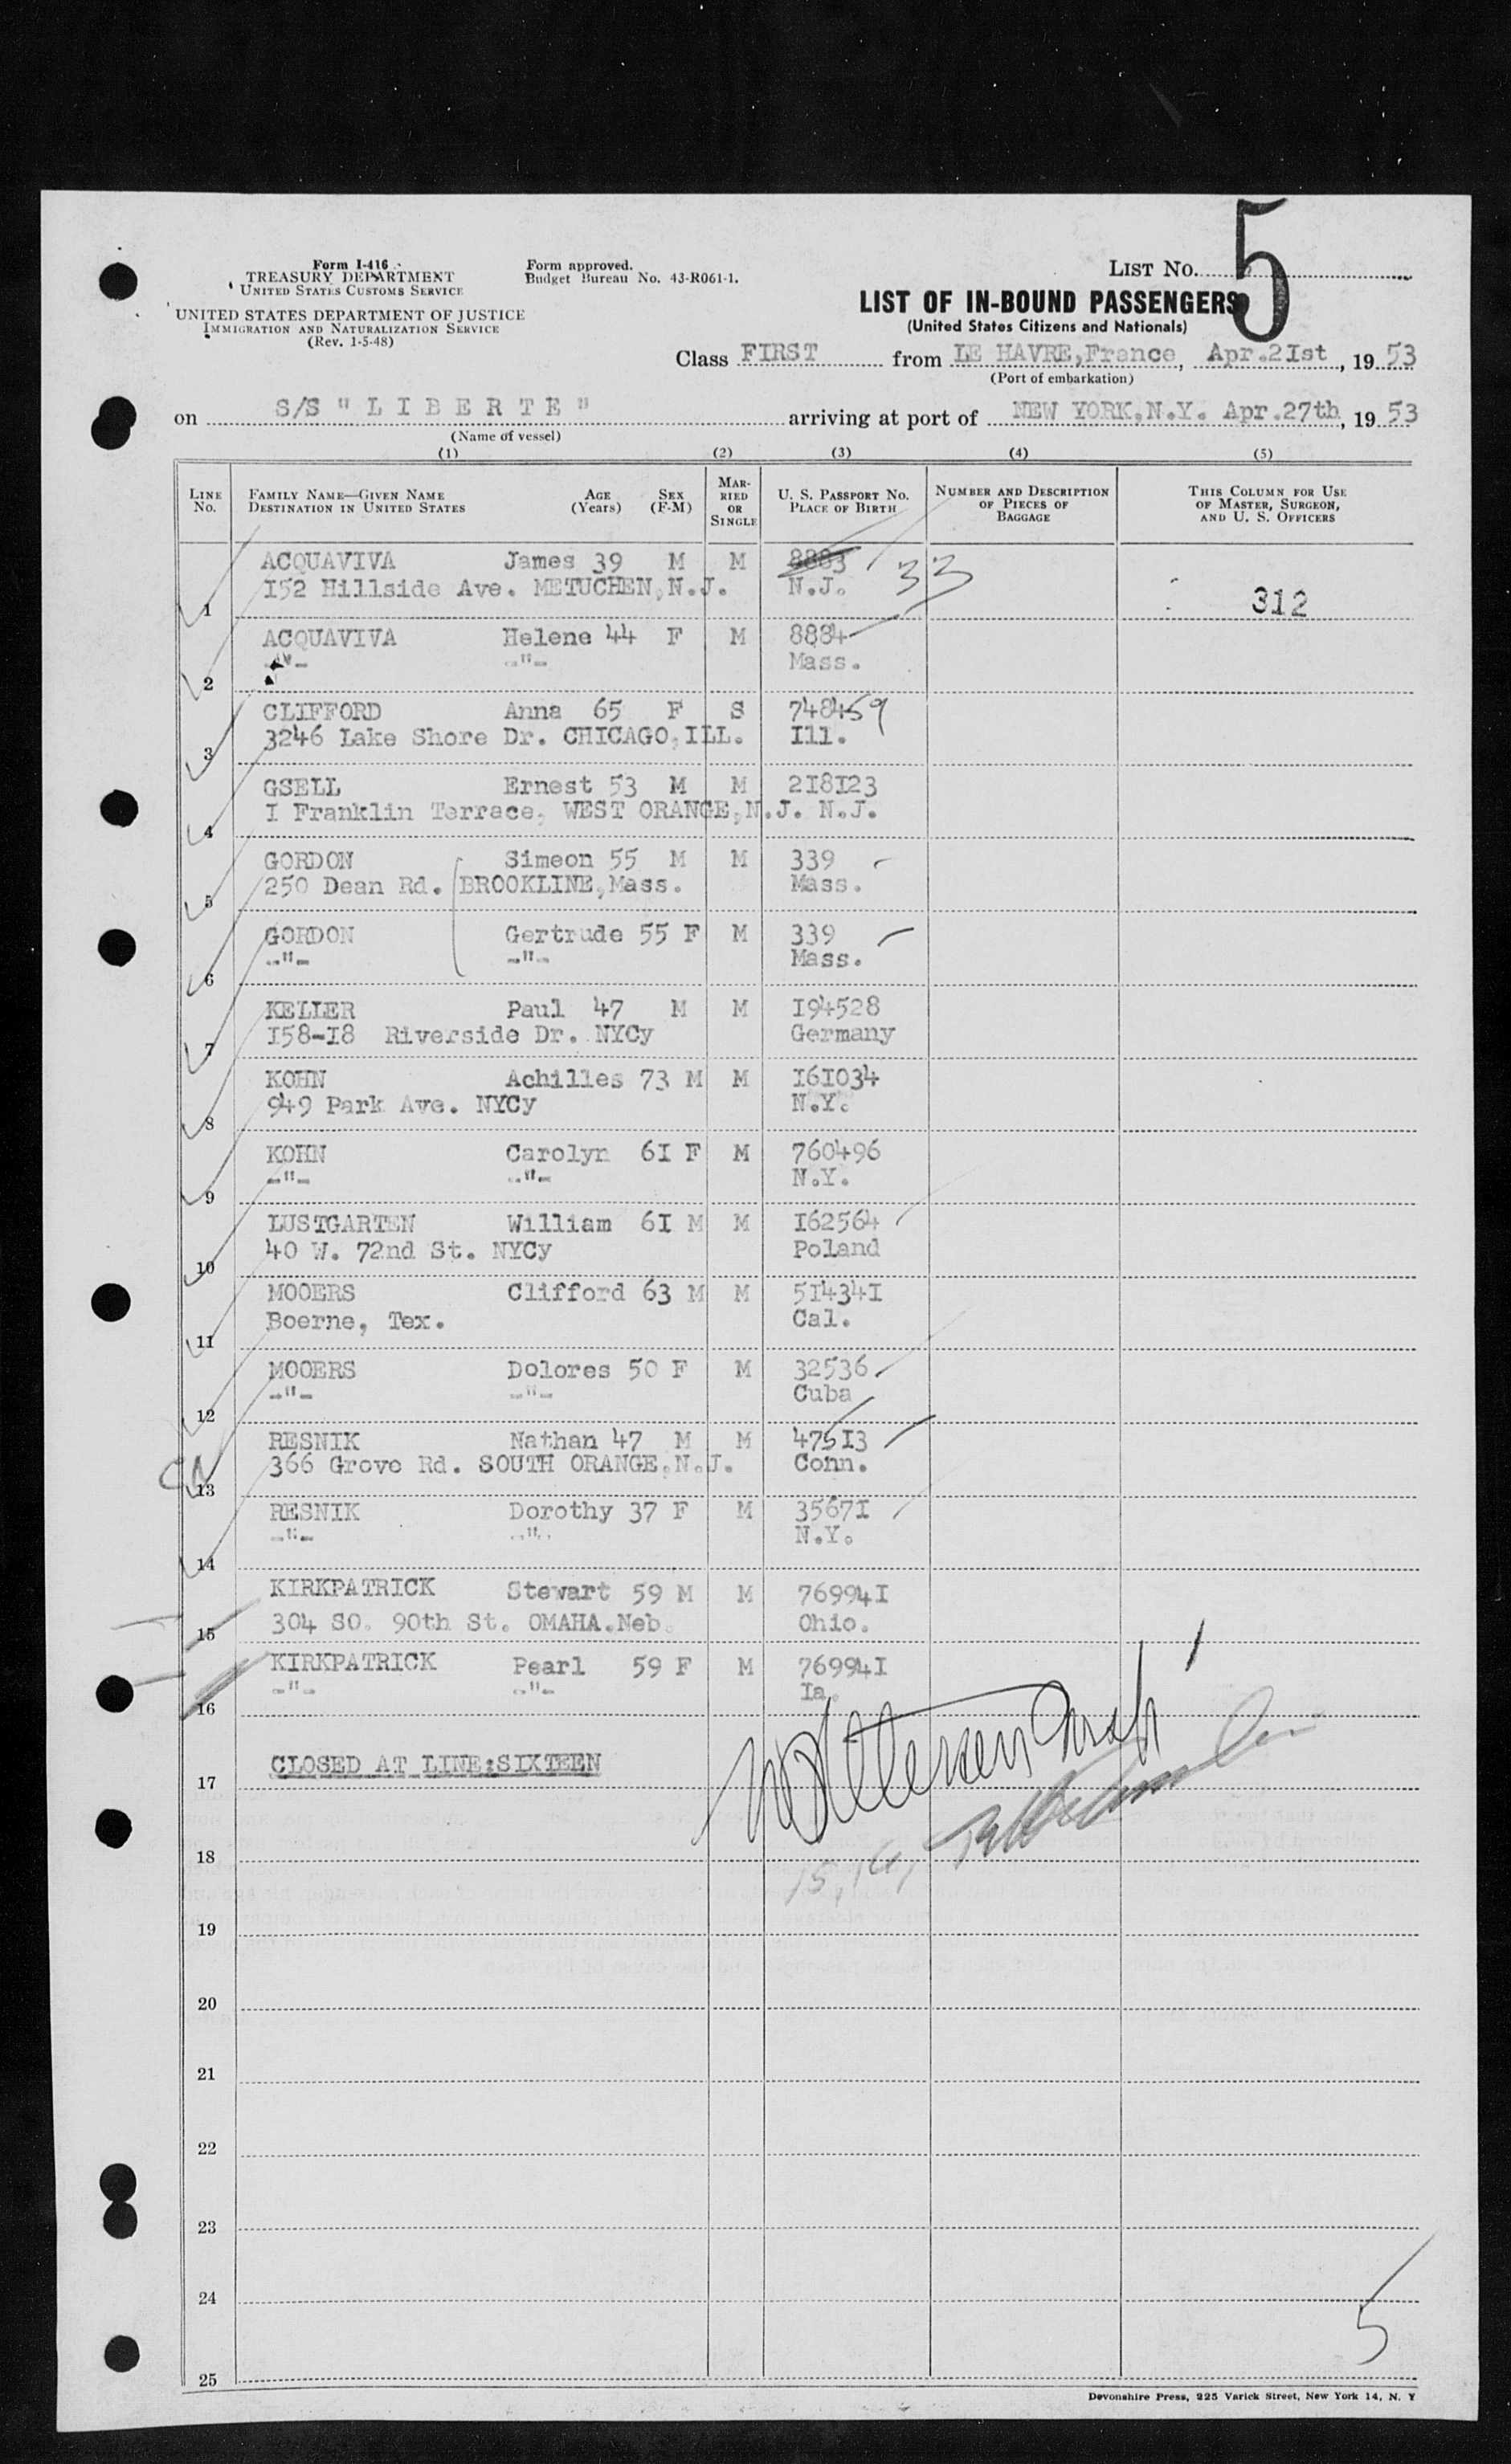 5
Form I-416
TREASURY DEPARTMENT
UNITED STATES CUSTOMS SERVICE
UNITED STATES DEPARTMENT OF JUSTICE
IMMIGRATION AND NATURALIZATION SERVICE
(Rev. 1-5-48)
Form approved.
Budget Bureau No. 43-R061-1.
LIST NO.
LIST OF IN-BOUND PASSENGERS
(United States Citizens and Nationals)
Class FIRST from LE HAVRE,France, Apr.2Ist, 19 53
(Port of embarkation)
on S/S " L I B E R T E " arriving at port of NEW YORK,N.Y. Apr.27th, 19 53
(Name of vessel)
(1) (2) (3) (4) (5)
LINE NO. FAMILY NAME—GIVEN NAME DESTINATION IN UNITED STATES AGE (Years) SEX (F-M) MARRIED OR SINGLE U. S. PASSPORT NO. PLACE OF BIRTH NUMBER AND DESCRIPTION OF PIECES OF BAGGAGE THIS COLUMN FOR USE OF MASTER, SURGEON, AND U. S. OFFICERS
ACQUAVIVA James 39 M M 8883 33
1 I52 Hillside Ave. METUCHEN,N.J. N.J. 312
ACQUAVIVA Helene 44 F M 8884
2 -"- -"- Mass.
CLIFFORD Anna 65 F S 748459
3 3246 Lake Shore Dr. CHICAGO,ILL. Ill.
GSELL Ernest 53 M M 2I8I23
4 I Franklin Terrace, WEST ORANGE,N.J. N.J.
GORDON Simeon 55 M M 339
5 250 Dean Rd. BROOKLINE,Mass. Mass.
GORDON Gertrude 55 F M 339
6 -"- -"- Mass.
KELLER Paul 47 M M I94528
7 I58-I8 Riverside Dr. NYCy Germany
KOHN Achilles 73 M M I6I034
8 949 Park Ave. NYCy N.Y.
KOHN Carolyn 6I F M 760496
9 -"- -"- N.Y.
LUSTGARTEN William 6I M M I62564
10 40 W. 72nd St. NYCy Poland
MOOERS Clifford 63 M M 5I434I
11 Boerne, Tex. Cal.
MOOERS Dolores 50 F M 32536
12 -"- -"- Cuba
RESNIK Nathan 47 M M 475I3
13 366 Grove Rd. SOUTH ORANGE,N.J. Conn.
RESNIK Dorothy 37 F M 3567I
14 -"- -"- N.Y.
KIRKPATRICK Stewart 59 M M 76994I
15 304 SO. 90th St. OMAHA.Neb. Ohio.
KIRKPATRICK Pearl 59 F M 76994I
16 -"- -"- Ia.
17 CLOSED AT LINE:SIXTEEN
18 15, 16,
19
20
21
22
23
24
5
25
Devonshire Press, 225 Varick Street, New York 14, N. Y